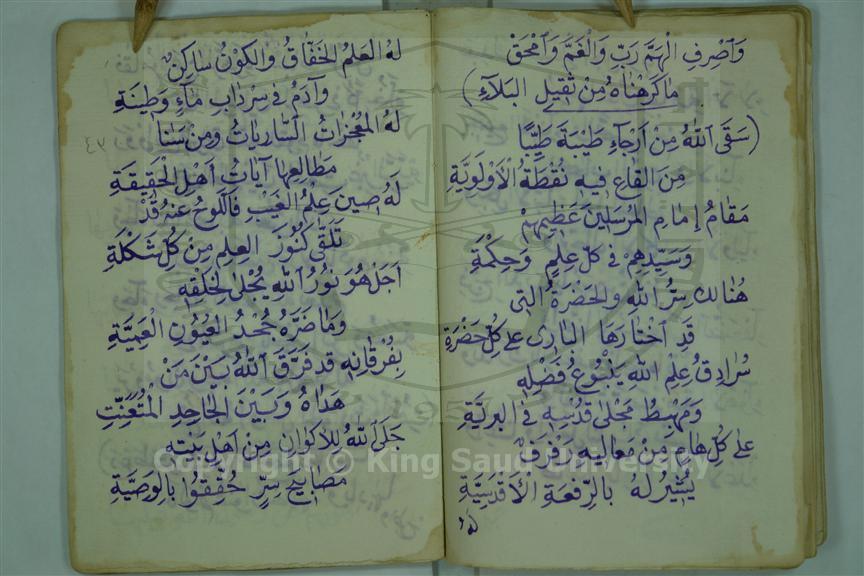 وَٱصْرِفِ الْهَمَّ رَبِّ وَالْغَمَّ وَٱمْحَقْ
مَا كَرِهْنَاهُ مِنْ ثَقِيلِ البَلَآءِ)
(سَقَى ٱللّٰهُ مِنْ اَرْجَآءِ طَيْبَةَ طَيِّبًا
مِنَ القَاعِ فِيهِ نُقْطَةُ الْاَوَّلَوِيَّةِ
مَقَامُ إِمَامِ المُرْسَلِينَ عَظِيمِهِمْ
وَسَيِّدِهِمْ فِي كُلِّ عِلْمٍ وَحِكْمَةِ
هُنَالِكَ سِرُّ اللّٰهِ وَالحَضْرَةُ الَّتِي
قَدِ ٱخْتَارَهَا البَارِي عَلَى كُلِّ حَضْرَةِ
سُرَادِقُ عِلْمِ اللّٰهِ يَنْبُوعُ فَضْلِهِ
وَمَهْبِطُ مَجْلَى قُدْسِهِ فِي البَرِيَّةِ
عَلَى كُلِّ هَامٍ مِنْ مَعَالِيهِ رَفْرَفٌ
يُشِيرُ لَهُ بِالرِّفْعَةِ الْاَقْدَسِيَّةِ
لَهُ
لَهُ العَلَمُ الخَفَّاقُ وَالكَوْنُ سَاكِنٌ
وَآدَمُ فِي سِرْدَابِ مَآءٍ وَطِينَةِ
لَهُ المُعْجِزَاتُ السَّارِيَاتُ وَمِنْ سَنَا
مَطَالِعِهَا آيَاتُ اَهْلِ الْحَقِيقَةِ
لَهُ صِينَ عِلْمُ الغَيْبِ فَاللَّوْحُ عَنْهُ قَدْ
تَلَقَّى كُنُوزَ العِلْمِ مِنْ كُلِّ شَكْلَةِ
اَجَلْ هُوَ نُورُ اللّٰهِ يُجْلَى لِخَلْقِهِ
وَمَا ضَرَّهُ جُحْدُ العُيُونِ الْعَمِيَّةِ
بِفُرْقَانِهِ قَدْ فَرَّقَ ٱللّٰهُ بَيْنَ مَنْ
هَدَاهُ وَبَيْنَ الجَاحِدِ الْمُتَعَنِّتِ
جَلَى ٱللّٰهُ لِلْاَكْوَانِ مِنْ اَهْلِ بَيْتِهِ
مَصَابِيحَ سِرٍّ حُقِّقُوا بِالوَصِيَّةِ
Copyright © King Saud University